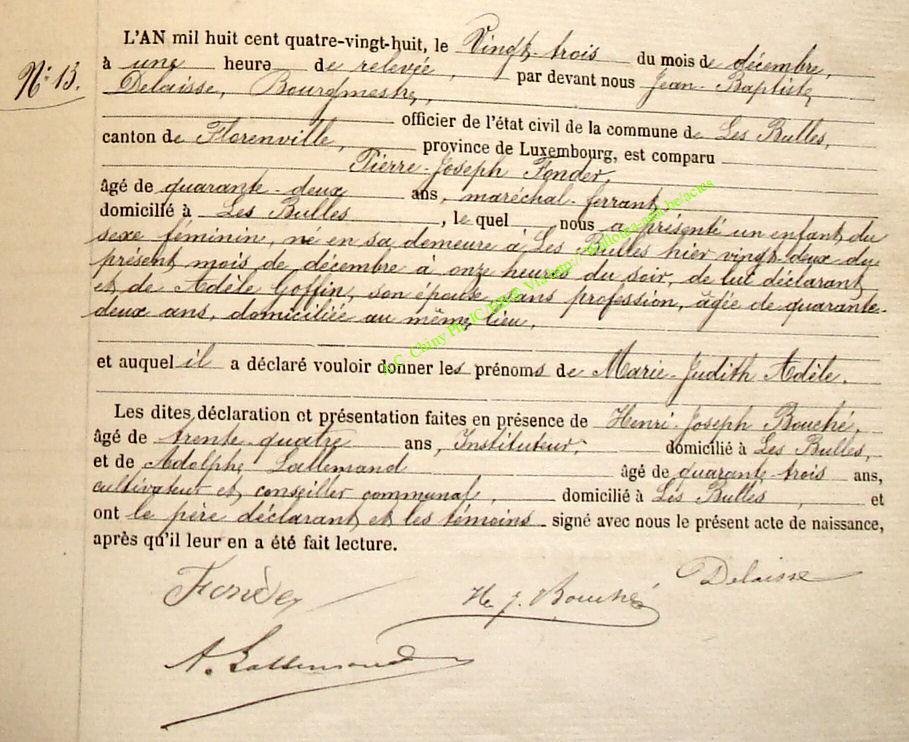 L'AN mil huit cent quatre-vingt-huit, le Vingt-trois du mois de décembre,
N° 13. à une heure de relevée, par devant nous Jean-Baptiste
Delaisse, Bourgmestre,
officier de l'état civil de la commune de Les Bulles,
canton de Florenville, province de Luxembourg, est comparu
Pierre-Joseph Fonder,
âgé de quarante-deux ans, maréchal-ferrant,
domicilié à Les Bulles, le quel nous a présenté un enfant du
sexe féminin, né en sa demeure à Les Bulles hier vingt-deux du
présent mois de décembre à onze heures du soir, de lui déclarant
et de Adèle Goffin, son épouse, sans profession, âgée de quarante-
deux ans, domiciliée au même lieu.
et auquel il a déclaré vouloir donner les prénoms de Marie-Judith Adèle.
Les dites déclaration et présentation faites en présence de Henri-Joseph Bouché,
âgé de trente-quatre ans, Instituteur, domicilié à Les Bulles,
et de Adolphe Lallemand âgé de quarante-trois ans,
cultivateur et conseiller communal, domicilié à Les Bulles, et
ont le père déclarant et les témoins signé avec nous le présent acte de naissance,
après qu'il leur en a été fait lecture.
Fonder H. J. Bouché Delaisse
A. Lallemand